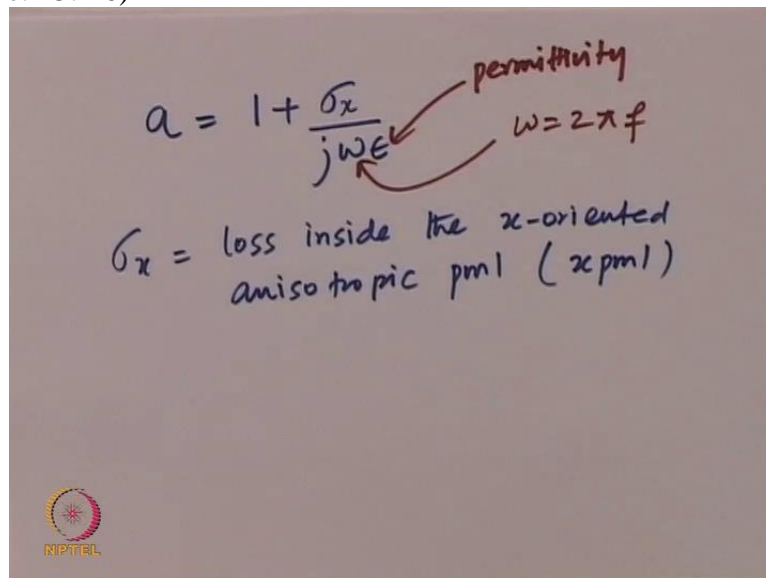 a = 1 + σx / jωϵ
permittivity
ω = 2πf
σx = loss inside the x-oriented
anisotropic pml (xpml)
NPTEL